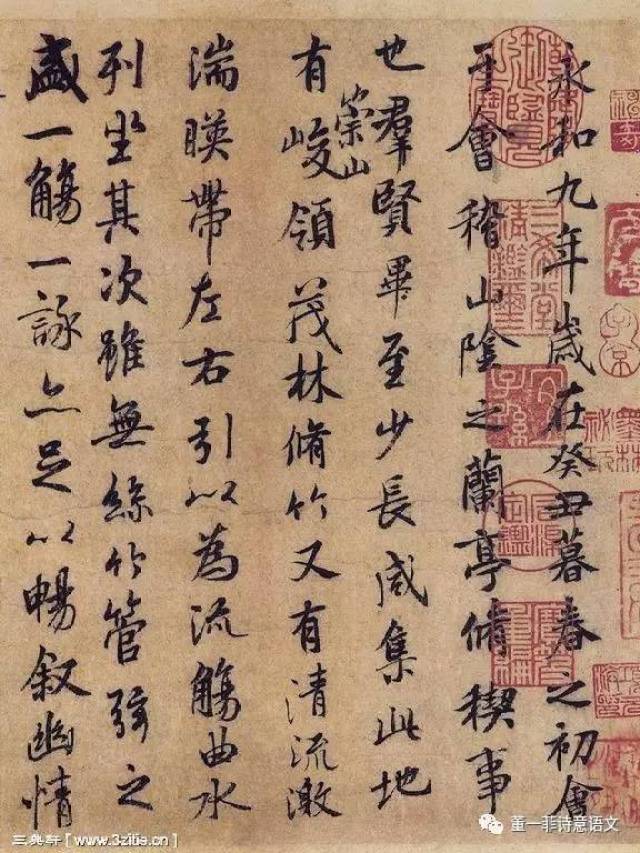 永和九年歲在癸丑暮春之初會
于會稽山陰之蘭亭脩稧事
也羣賢畢至少長咸集此地
有崇山峻領茂林脩竹又有清流激
湍暎帶左右引以為流觴曲水
列坐其次雖無絲竹管弦之
盛一觴一詠亦足以暢叙幽情
三希堂精鑑璽
宜子孫
[www.3zitie.cn]
董一菲诗意语文